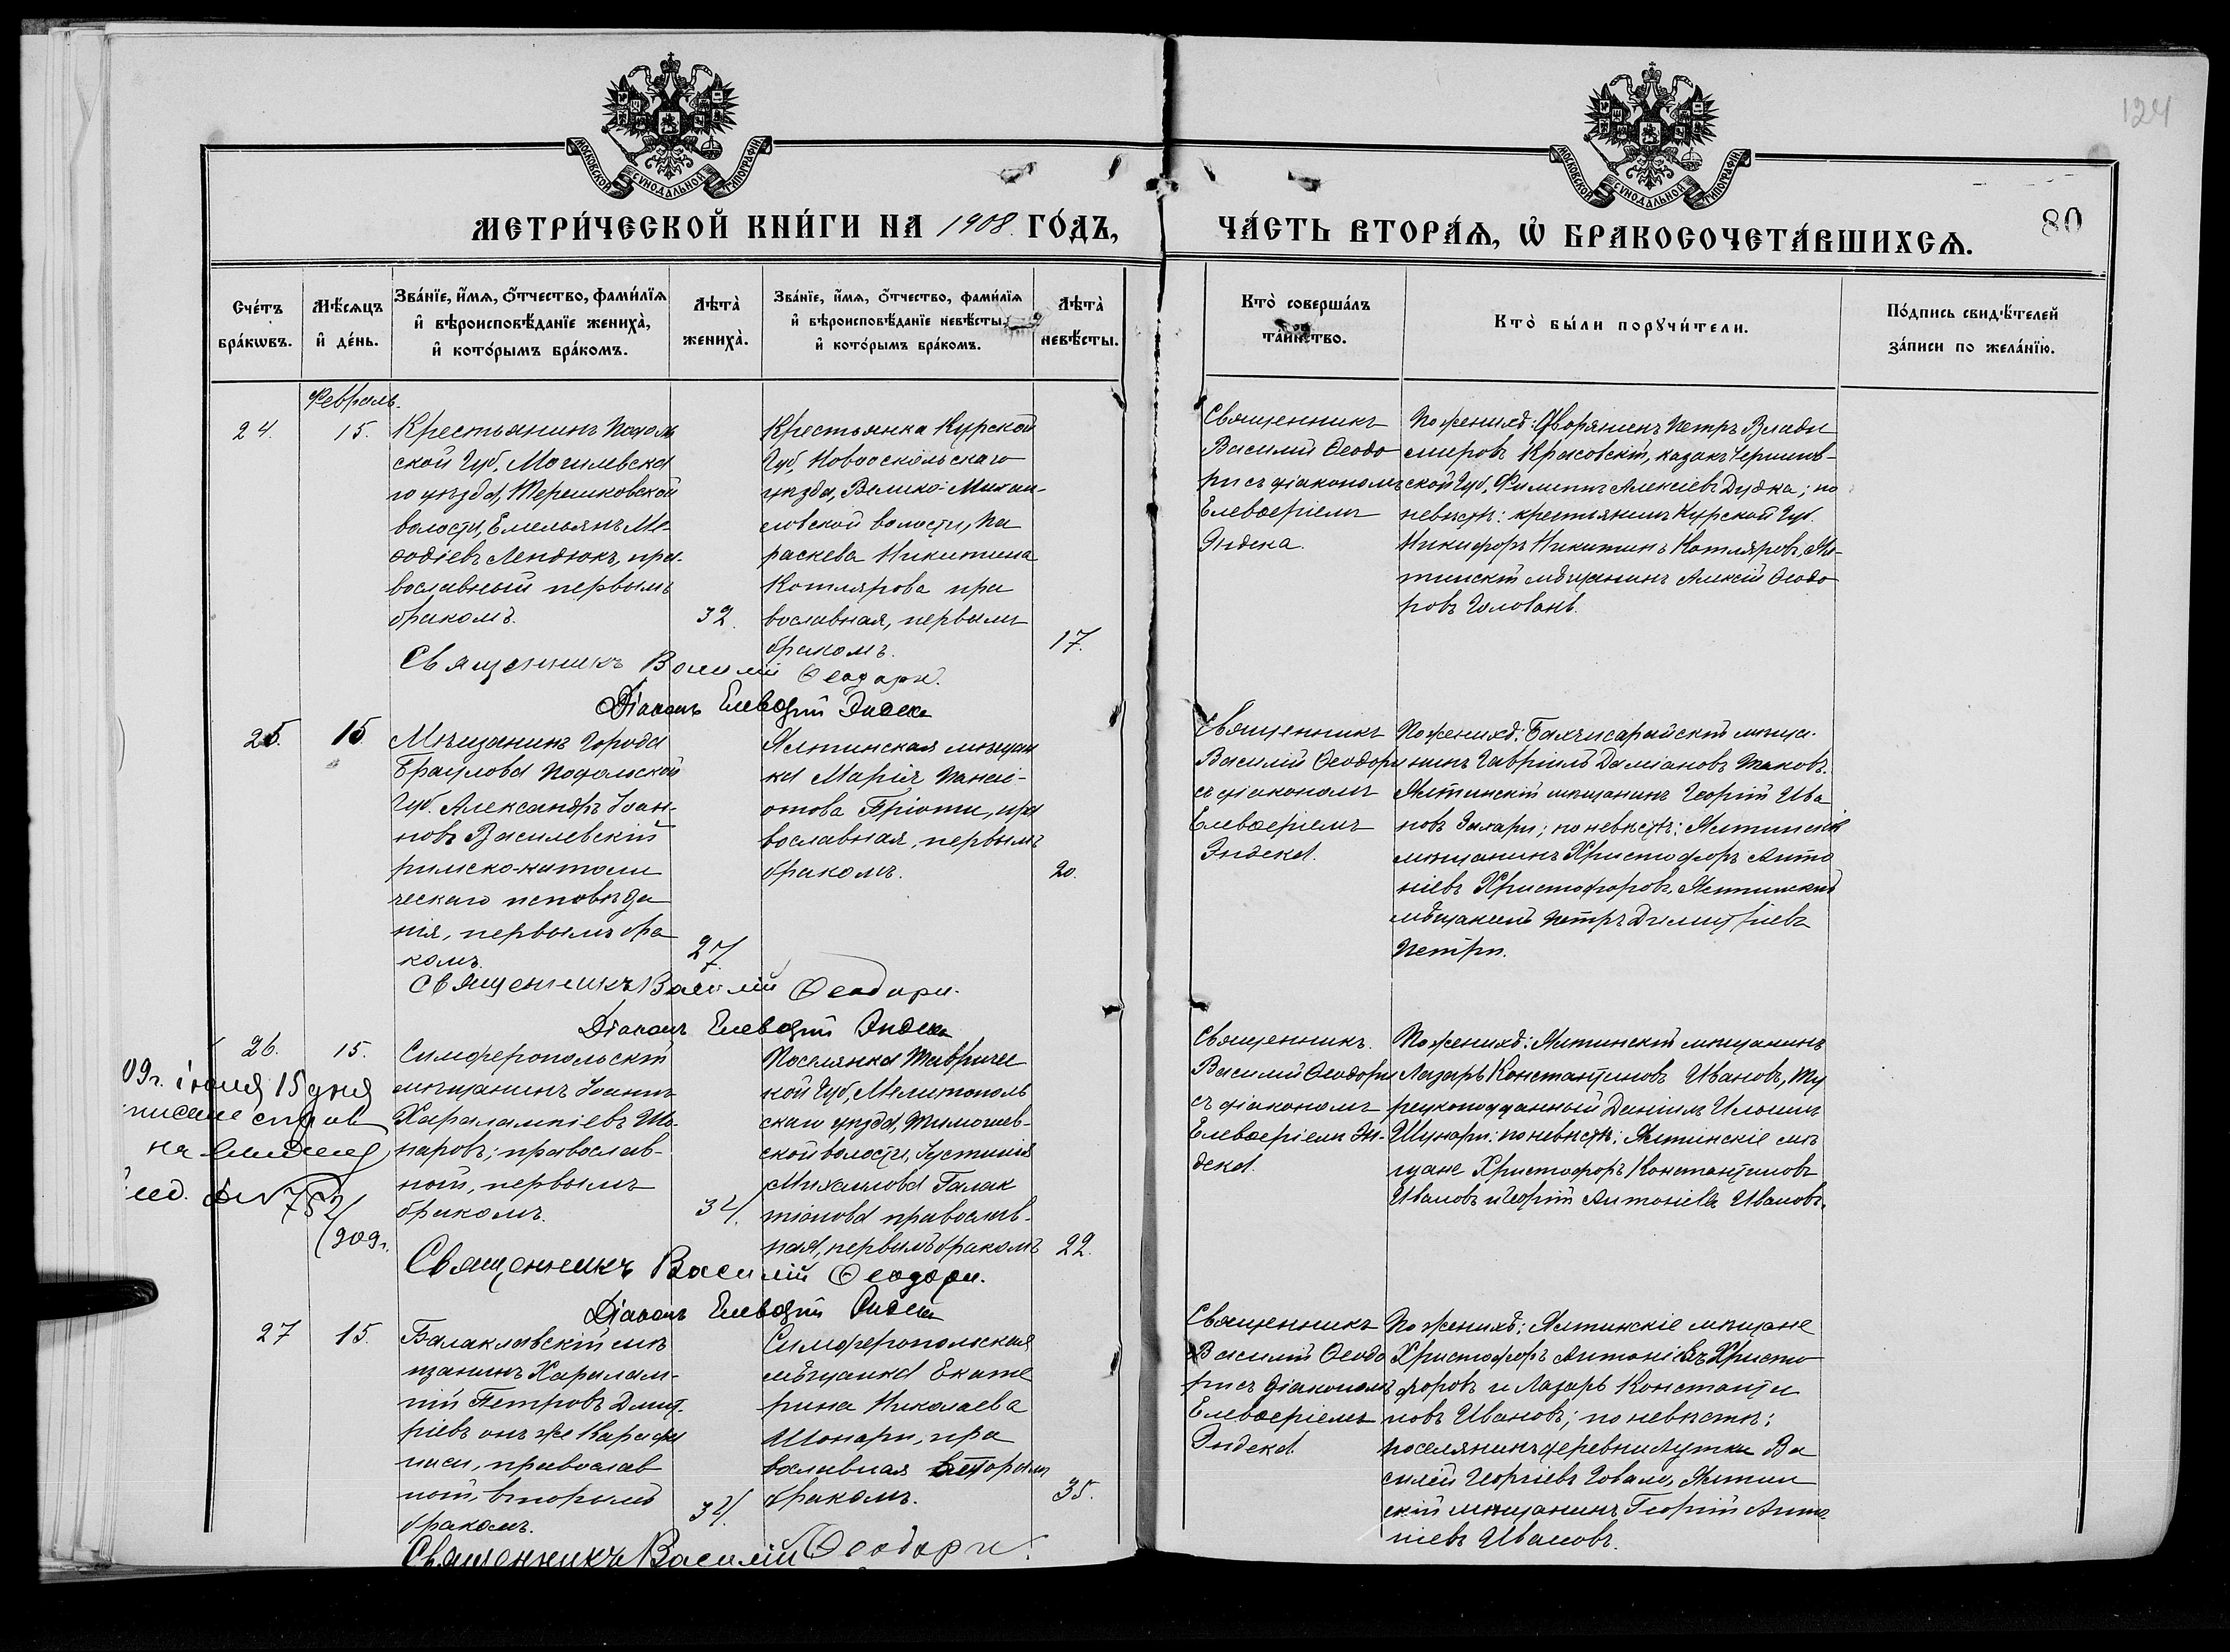 124
80
МОСКОВСКОЙ СѴНОДАЛЬНОЙ ТИПОГРАФІИ
МОСКОВСКОЙ СѴНОДАЛЬНОЙ ТИПОГРАФІИ
МЕТРИ́ЧЕСКОЙ КНИ́ГИ НА 1908. ГО́ДЪ,
ЧА́СТЬ ВТОРА́Ѧ, Ѡ҆ БРАКОСОЧЕТА́ВШИХСѦ.
Сче́тъ
бра́кѡвъ.
Мѣ́сѧцъ
и҆ де́нь.
Зва́нїе, и҆́мѧ, ѻ҆́тчество, фами́лїѧ
и҆ вѣроисповѣ́данїе жениха̀,
и҆ кото́рымъ бра́комъ.
Лѣта̀
жениха̀.
Зва́нїе, и҆́мѧ, ѻ҆́тчество, фами́лїѧ
и҆ вѣроисповѣ́данїе невѣ́сты,
и҆ кото́рымъ бра́комъ.
Лѣта̀
невѣ́сты.
Кто̀ соверша́лъ
та́инство.
Кто̀ бы́ли порꙋчи́тели.
По́дпись свидѣ́телей
за́писи по жела́нїю.
Февраль.
24.
15.
Крестьянинъ Подоль
ской Губ, Могилевска
го уѣзда, Терешковской
волости, Емельянъ Ме
ѳодіевъ Лендюкъ, пра-
вославный первымъ
бракомъ.
32.
Крестьянка Курской
Губ, Новооскольскаго
уѣзда, Велико-Михай-
ловской волости, Па
раскева Никитина
Котлярова пра
вославная, первымъ
бракомъ.
17.
Священникъ
Василий Ѳеодо
ри съ діакономъ
Елевѳеріемъ
Эндека.
По женихѣ: Дворянинъ Петръ Влади
мировъ Красовскій, казакъ Чернигов-
ской Губ, Филиппъ Алексіевъ Дудка; по
невѣстѣ: крестьянинъ Курской Губ.
Никифоръ Никитинъ Котляровъ, Ял-
тинскій мѣщанинъ Алексій Ѳеодо
ровъ Головань.
Священникъ Василій Ѳеодори.
Діаконъ Елевѳерій Эндека
25.
15.
Мѣщанинъ Города
Браилова Подольской
Губ. Александръ Іоан-
новъ Василевскій
римско-католи
ческаго исповѣда
нія, первымъ бра
комъ.
27.
Ялтинская мѣщан
ка Марія Панаі-
отова Гріоти, пра
вославная, первымъ
бракомъ.
20.
Священникъ
Василій Ѳеодори
съ діакономъ
Елевѳеріемъ
Эндека.
По женихѣ: Бахчисарайскій мѣща-
нинъ Гавріилъ Даміановъ
Ялтинскій мѣщанинъ Георгій Ива
новъ по невѣстѣ: Ялтинскій
мѣщанинъ Христофоръ Анто
ніевъ Христофоровъ, Ялтинскій
мѣщанинъ Петръ Димитріевъ
Петри.
Священникъ Василій Ѳеодори.
Діаконъ Елевѳерій Эндека
26.
15.
09г. іюля 15 дня
на
752
/909г.
Симферопольскій
мѣщанинъ Іоаннъ
Харалампіевъ
православ-
ной, первымъ
бракомъ.
34.
Поселянка Тавричес
кой Губ, Мелитополь
скаго уѣзда, Тимошев-
ской волости, Іустинія
Михаилова Галак
тіонова православ-
ная, первымъ бракомъ
22.
Священникъ.
Василий Ѳеодори
съ діакономъ
Елевѳеріемъ Эн-
дека.
По женихѣ: Ялтинскій мѣщанинъ
Лазарь Константиновъ Ивановъ, Ту
рецкоподданный Даніилъ
по невѣстѣ: Ялтинскіе мѣ
щане Христофоръ Константиновъ
Ивановъ и Георгій Антоніевъ Ивановъ.
Священникъ Василій Ѳеодори.
Діаконъ Елевѳерій Эндека
27
15.
Балаклавскій мѣ
щанинъ Харалам-
пій Петровъ Дмит-
ріевъ онъ же
православ
ной, вторымъ
бракомъ.
34.
Симферопольская
мѣщанка Екате
рина Николаева
Шонари, пра
вославная вторымъ
бракомъ.
35.
Священникъ
Василій Ѳеодо
ри съ діакономъ
Елевѳеріемъ
Эндека.
По женихѣ: Ялтинскіе мѣщане
Христофоръ Антоніевъ Христо
форовъ и Лазарь Константи
новъ Ивановъ; по невѣстѣ:
поселянинъ деревни Аутки Ва
силій Георгіевъ Ялтин
скій мѣщанинъ Георгій Анто
ніевъ Ивановъ.
Священникъ Василій Ѳеодори.